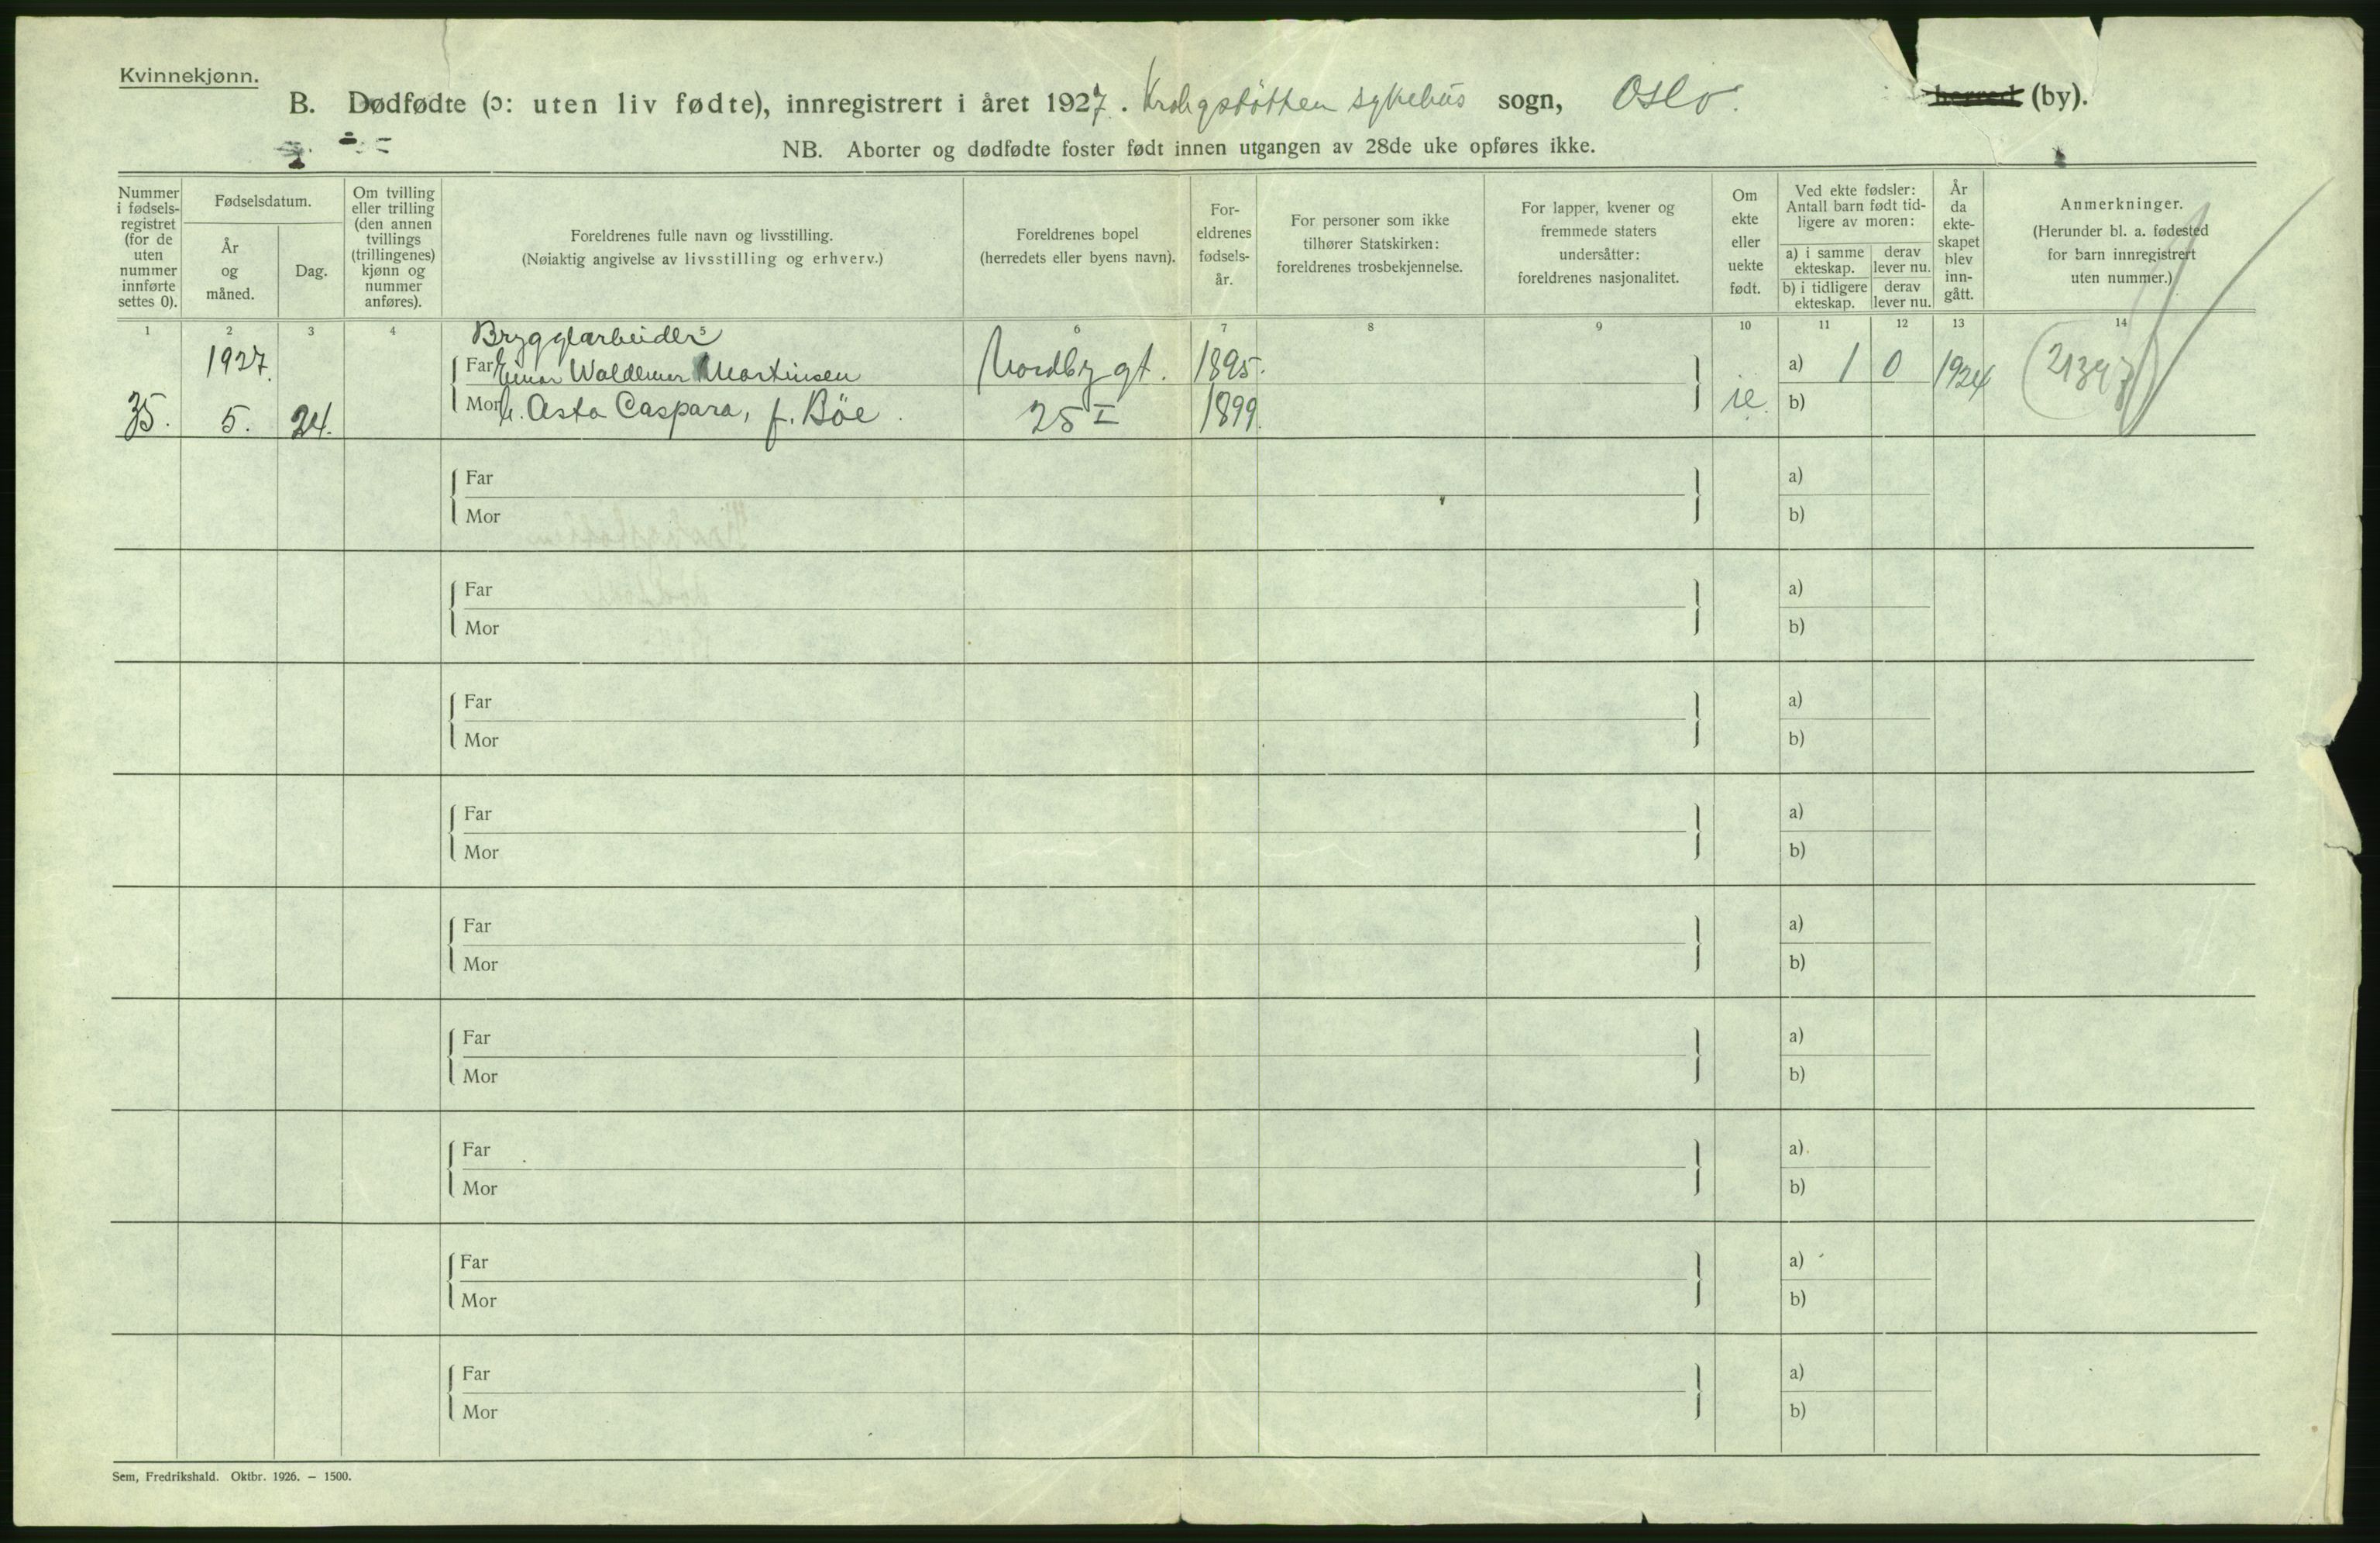 Kvinnekjønn.
B. Dødfødte (ɔ: uten liv fødte), innregistrert i året 1927. Krohgstøtten sykehus sogn, Oslo. herred (by).
NB. Aborter og dødfødte foster født innen utgangen av 28de uke opføres ikke.
Nummer i fødsels-registret (for de uten nummer innførte settes 0).
Fødselsdatum.
År og måned.
Dag.
Om tvilling eller trilling (den annen tvillings (trillingenes) kjønn og nummer anføres).
Foreldrenes fulle navn og livsstilling.
(Nøiaktig angivelse av livsstilling og erhverv.)
Foreldrenes bopel
(herredets eller byens navn).
For-eldrenes fødsels-år.
For personer som ikke tilhører Statskirken: foreldrenes trosbekjennelse.
For lapper, kvener og fremmede staters undersåtter: foreldrenes nasjonalitet.
Om ekte eller uekte født.
Ved ekte fødsler: Antall barn født tid-ligere av moren:
a) i samme ekteskap. derav lever nu.
b) i tidligere ekteskap. derav lever nu.
År da ekte-skapet blev inn-gått.
Anmerkninger.
(Herunder bl. a. fødested for barn innregistrert uten nummer.)
1 2 3 4 5 6 7 8 9 10 11 12 13 14
Bryggearbeider
1927. Far Einar Waldemar Martinsen Nordby gt. 1895. a) 1 0 1924 (21397)
35. 5. 24. Mor h. Asta Caspara, f. Böe. 25 I 1899. ie. b)
Far a)
Mor b)
Far a)
Mor b)
Far a)
Mor b)
Far a)
Mor b)
Far a)
Mor b)
Far a)
Mor b)
Far a)
Mor b)
Far a)
Mor b)
Far a)
Mor b)
Sem, Fredrikshald. Oktbr. 1926. — 1500.